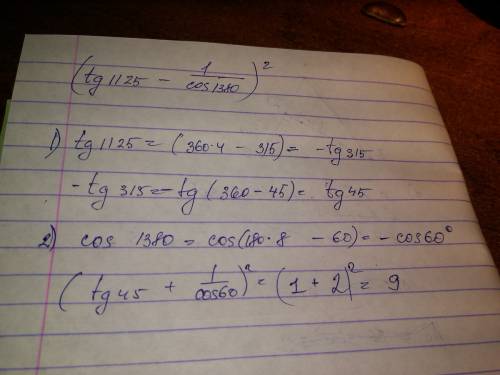 (tg 1125 - 1/cos 1380)²
1) tg 1125 = (360·4 - 315) = -tg 315
-tg 315 = -tg (360 - 45) = tg 45
2) cos 1380 = cos(180·8 - 60) = - cos 60°
(tg 45 + 1/cos 60)² = (1 + 2)² = 9